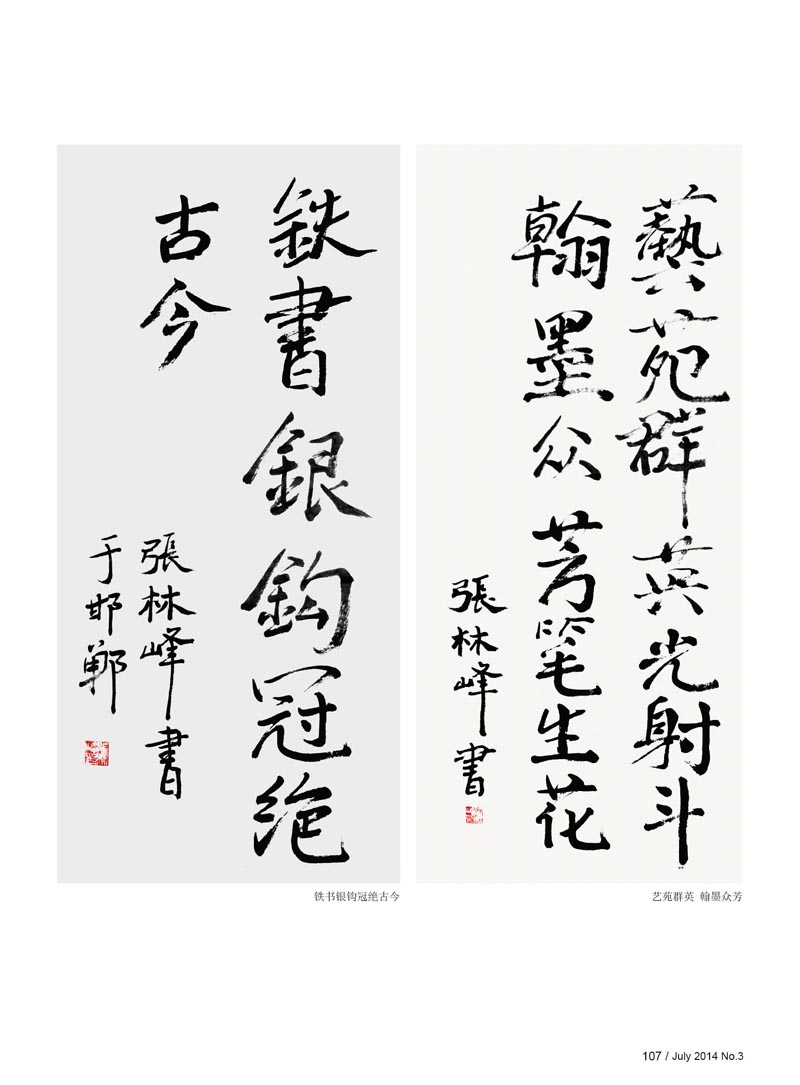 鉄書銀鈎冠绝
古今
張林峰書
于邯郸
铁书银钩冠绝古今
藝苑群英光射斗
翰墨众芳笔生花
張林峰書
艺苑群英 翰墨众芳
107 / July 2014 No.3